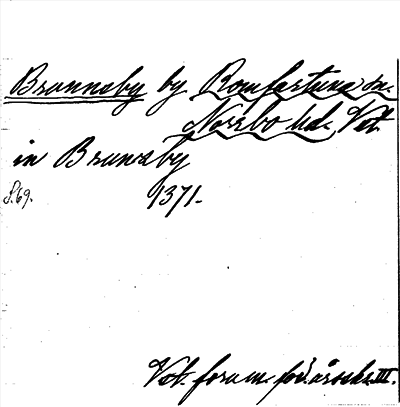 Brunnsby by Romfartuna sn.
Norrbo hd. Vstl.
in Brunxby
S.69. 1371.
Vstl. fornm. för. årsskr. III.